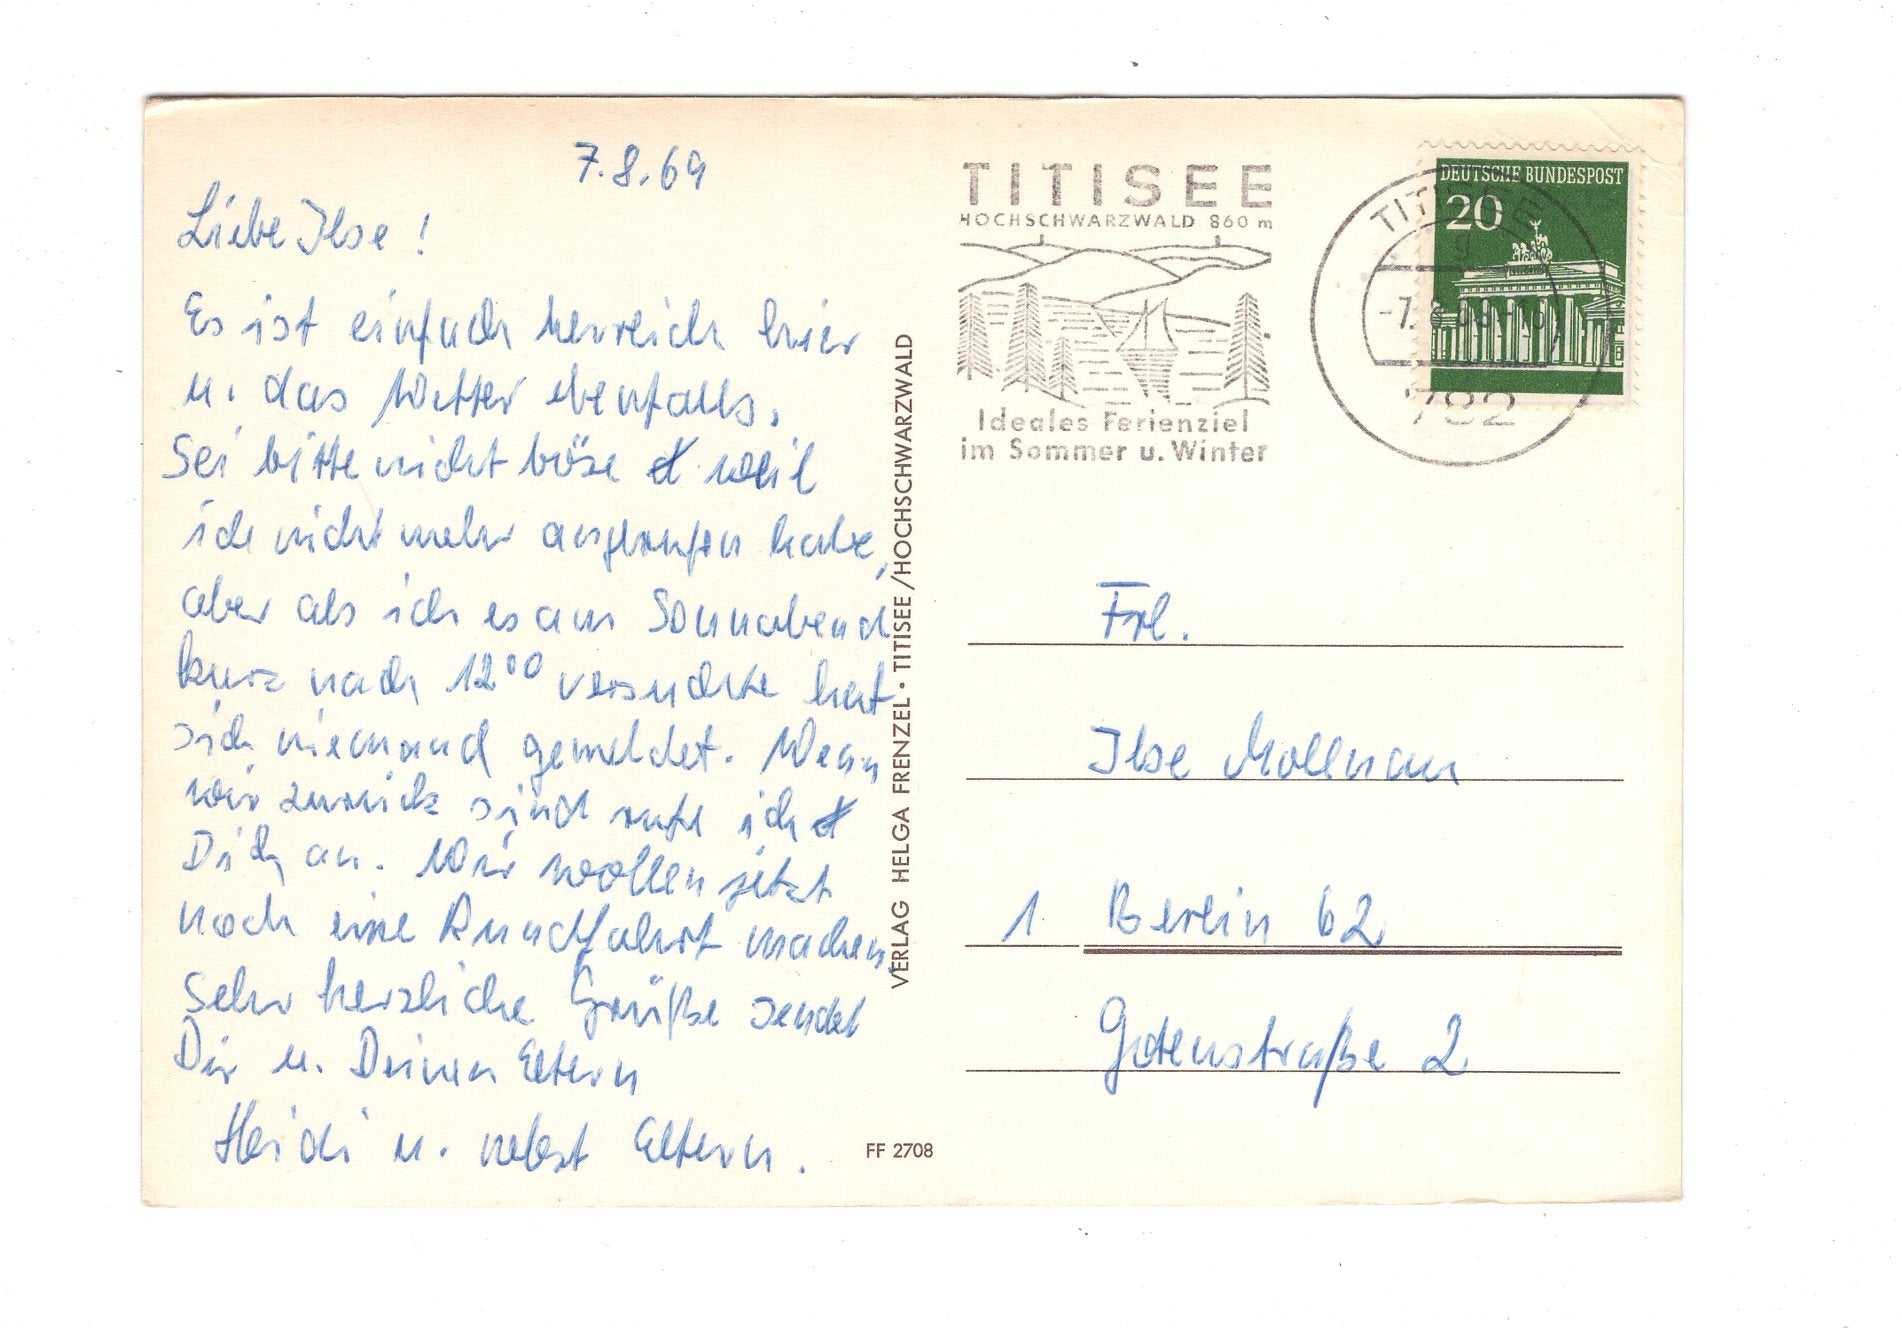 7.8.69
Liebe Ilse !
Es ist einfach herrlich hier
u. das Wetter ebenfalls.
Sei bitte nicht böse weil
ich nicht mehr angerufen habe,
aber als ich es am Sonnabend
kurz nach 12⁰⁰ versuchte hat
sich niemand gemeldet. Wenn
wir zurück sind rufe ich
Dich an. Wir wollen jetzt
noch eine Rundfahrt machen.
Sehr herzliche Grüße sendet
Dir u. Deinen Eltern
Heidi u. nebst Eltern.
VERLAG HELGA FRENZEL · TITISEE/HOCHSCHWARZWALD
FF 2708
TITISEE
HOCHSCHWARZWALD 860 m
Ideales Ferienziel
im Sommer u. Winter
TITISEE
g
-7. 8. 69-
782
DEUTSCHE BUNDESPOST
20
Frl.
Ilse Mollnau
1 Berlin 62
Gotenstraße 2